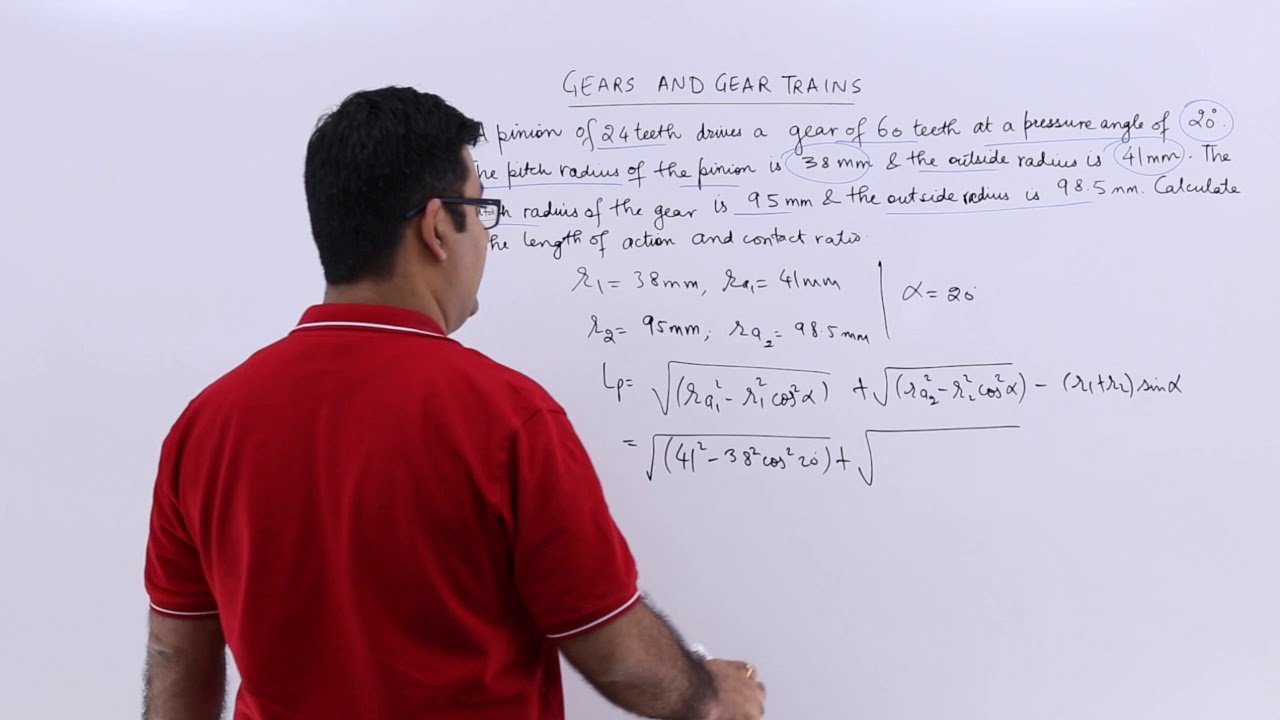 GEARS AND GEAR TRAINS
A pinion of 24 teeth drives a gear of 60 teeth at a pressure angle of 20°.
The pitch radius of the pinion is 38mm & the outside radius is 41mm. The
radius of the gear is 95mm & the outside radius is 98.5mm. Calculate
the length of action and contact ratio.
r₁ = 38mm, ra₁ = 41mm
α = 20°
r₂ = 95mm, ra₂ = 98.5mm
Lp = √(ra₁² - r₁² cos²α) + √(ra₂² - r₂² cos²α) - (r₁+r₂) sinα
= √(41² - 38² cos² 20°) + √